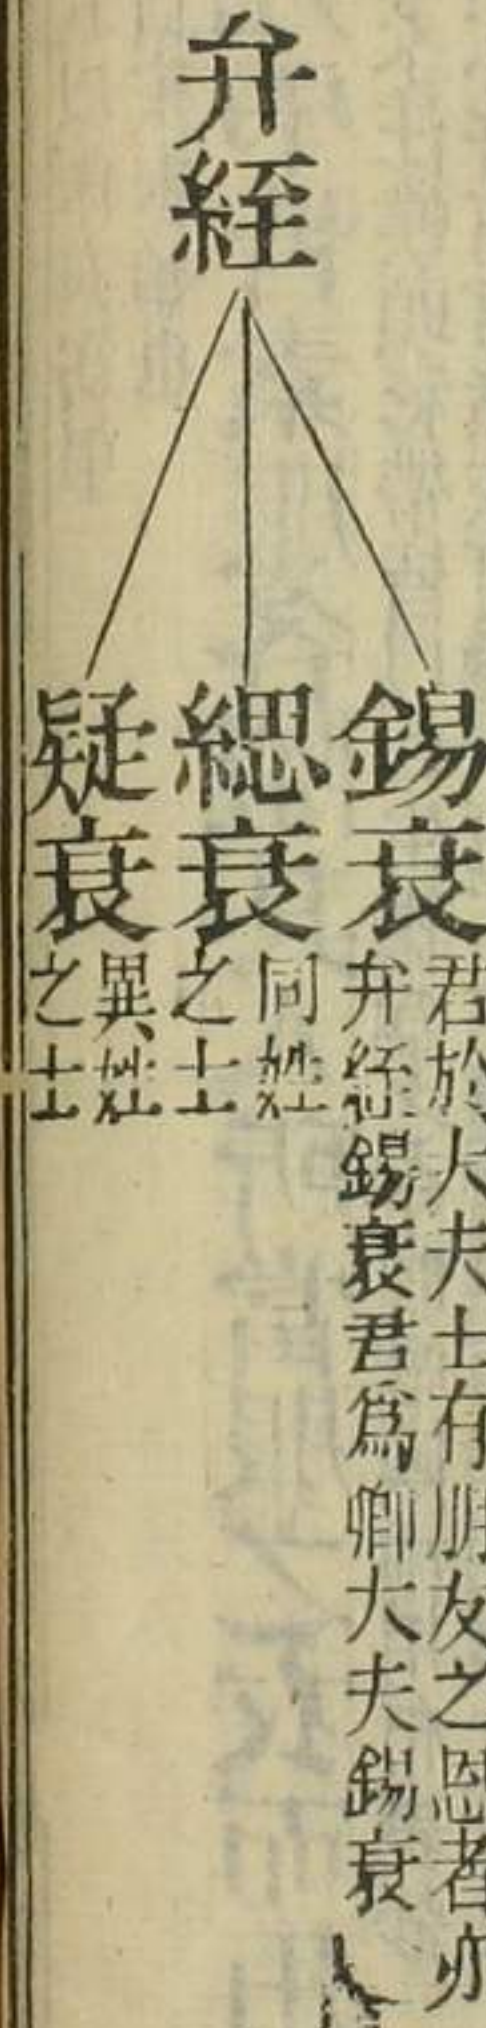 弁絰
錫衰
君於大夫士有朋友之恩者亦
弁絰錫衰君爲卿大夫錫衰
緦衰
同姓
之士
疑衰
異姓
之士